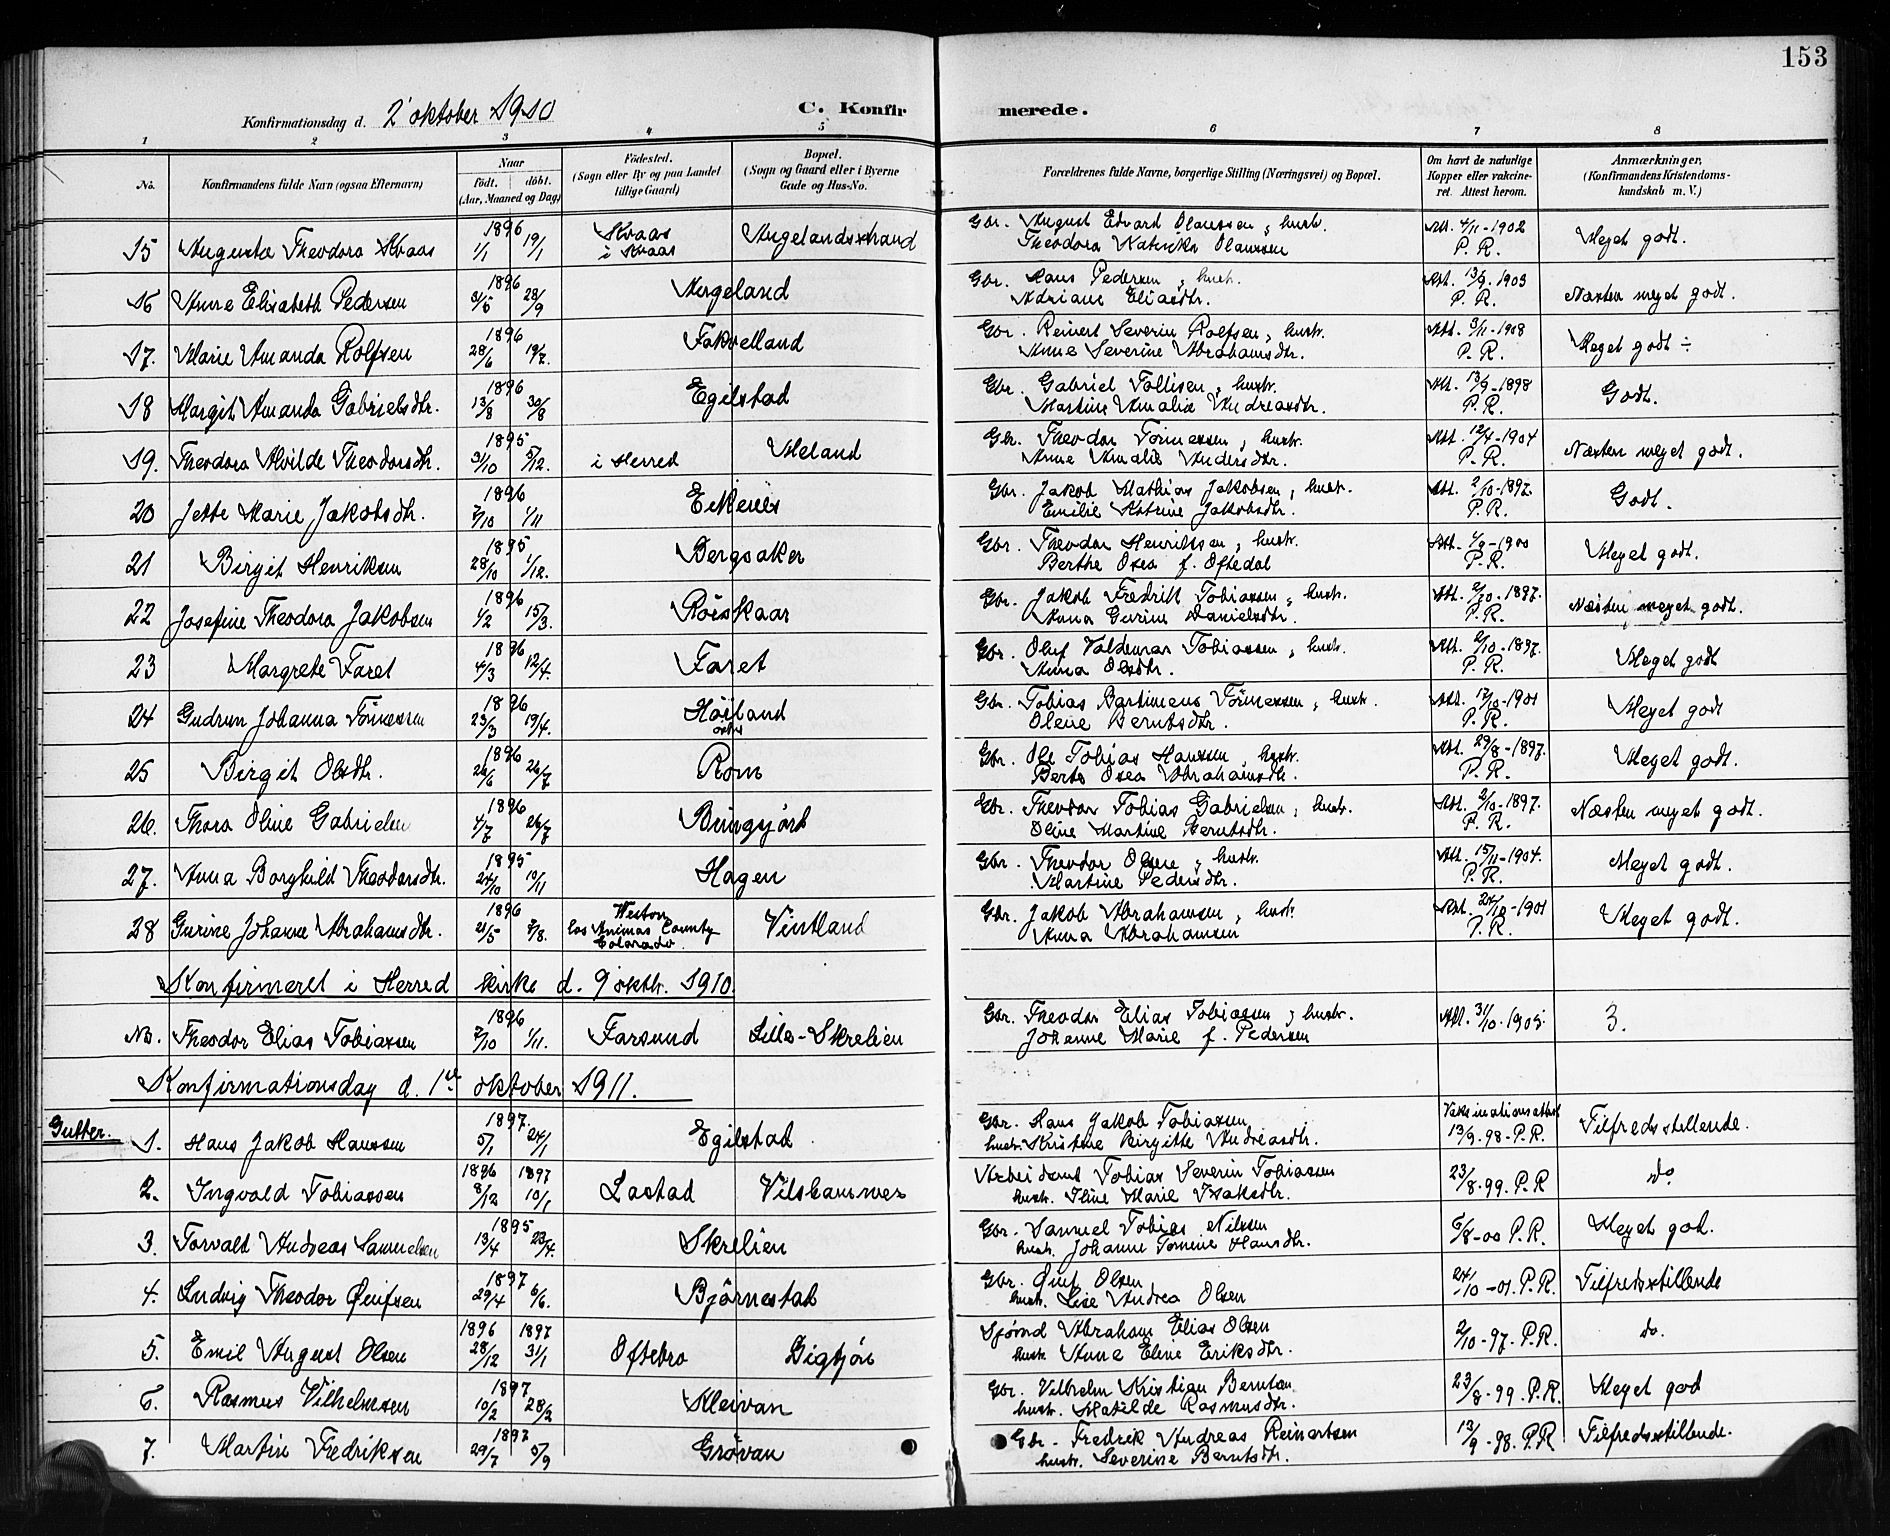 153
Konfirmationsdag d. 2' oktober 1910
C. Konfirmerede.
1 2 3 4 5 6 7 8
No.
Konfirmandens fulde Navn (ogsaa Efternavn)
Naar
født. døbt.
(Aar, Maaned og Dag)
Fødested.
(Sogn eller By og paa Landet
tillige Gaard)
Bopæl.
(Sogn og Gaard eller i Byerne
Gade og Hus-No.
Forældrenes fulde Navne, borgerlige Stilling (Næringsvei) og Bopæl.
Om havt de naturlige
Kopper eller vakcine-
ret. Attest herom.
Anmærkninger,
(Konfirmandens Kristendoms-
kundskab m. V.)
15 Augusta Theodora Kvaas 1896 1/1 19/1 Kvaas i Kvaas Augelandsstrand Gbr. August Edvard Olaussen, hustr. Att. 4/11-1902 Meget godt.
Theodora Olaussen P. R.
16 Anne Elisabeth Pedersen 1896 3/5 28/9 Augeland Gbr. Hans Pedersen, hustr. Att. 13/9-1903 Næsten meget godt.
Adriane Eliasdtr. P. R.
17. Marie Amanda Rolfsen 1896 28/6 19/7. Gbr. Reinert Severin Rolfsen, hustr. Att. 3/11-1908 Meget godt ÷
Anne Severine Abrahamsdtr. P. R.
18 Margit Amanda Gabrielsdtr. 1896 13/8 30/8 Egilstad Gbr. Gabriel Tollisen, hustr. Att. 13/9-1898 Godt.
Martine Amalia Andreasdtr. P. R.
19. Theodora Alvilde Theodorsdtr. 1895 31/10 5/12. i Herred Meland Gbr. Theodor Tønnessen, hustr. Att. 12/4-1904 Næsten meget godt.
Anne Amalie Andersdtr. P. R.
20 Jette Marie Jakobsdtr. 1896 7/10 1/11 Eikenes Gbr. Jakob Mathias Jakobsen, hustr. Att. 2/10-1897. Godt.
Emilie Katrine Jakobsdtr. P. R.
21 Birgit Henriksen 1895 28/10 1/12. Bergsaker Gbr. Theodor Henriksen, hustr. Att. 4/9-1900 Meget godt.
Berthe Osea f. Oftedal P. R.
22 Josefine Theodora Jakobsen 1896 1/2 15/3. Røiskaar Gbr. Jakob Fredrik Tobiassen, hustr. Att. 2/10-1897. Næsten meget godt.
Anna Gurine Danielsdtr. P. R.
23 Margrete Faret 1896 4/3 12/4. Faret Gbr. Oluf Valdemar Tobiassen, hustr. Att. 2/10-1897. Meget godt
Anna Olsdtr. P. R.
24 Gudrun Johanna Tønnessen 1896 23/3 19/4. Høiland Gbr. Tobias Bartimeus Tønnessen, hustr. Att. 17/10-1901 Meget godt
Oline Berntsdtr. P. R.
25 Birgit Olsdtr. 1896 26/6 26/7 Rom Gbr. Ole Tobias Hanssen, hustr. Att. 29/8-1897. Meget godt.
Berte Osea Abrahamsdtr. P. R.
26. Thora Oline Gabrielsen 1896 4/7 26/7 Bringsjord Gbr. Theodor Tobias Gabrielsen, hustr. Att. 2/10-1897. Næsten meget godt.
Oline Martine Berntsdtr. P. R.
27. Anna Borghild Theodorsdtr. 1895 24/10 10/11 Hagen Gbr. Theodor Olsen, hustr. Att. 15/11-1904. Meget godt.
Martine Pedersdtr. P. R.
28 Gurine Johanne Abrahamsdtr. 1896 21/5 2/8. Weston Las Animas County Colorado. Vintland Gbr. Jakob Abrahamsen, hustr. Att. 24/10-1901 Meget godt.
Anna Abrahamsen P. R.
Konfirmeret i Herred kirke d. 9' oktbr. 1910.
Nb. Theodor Elias Tobiassen 1896 7/10 1/11. Farsund Lille-Skrelien Gbr. Theodor Elias Tobiassen, hustr. Att. 31/10-1905. 3.
Johanne Marie f. Pedersen
Konfirmationsdag d. 1ste oktober 1911.
Gutter.
1. Hans Jakob Hanssen 1897. 5/1 24/1 Egilstad Gbr. Hans Jakob Tobiassen Vaksinationsattest Tilfredsstillende.
hustr. Kristine Birgitte Andreasdtr. 13/9-98-P.R.
2. Ingvald Tobiassen 1896 8/12 1897 10/1 Lastad Vilshammer Arbeidsmd Tobias Severin Tobiassen 23/8-99. P. R do.
hustr. Iline Marie Isaksdtr.
3. Torvald Andreas Samuelsen 1895 13/4 23/4. Skrelien Gbr. Samuel Tobias Nilsen 5/8-00 P. R. Meget god.
hustr. Johanne Tomine Hansdtr.
4. Ludvig Theodor Øuifsen 1897 29/4 6/6. Bjørnestad Gbr. Øuif Olsen 24/10-01. P. R. Tilfredsstillende
hustr. Lise Andrea Olsen
5. Emil August Olsen 1896 28/12 1897 31/1 Oftebro Sigtjøn Sjømd Abraham Elias Olsen 2/10-97. P. R. do.
hustr. Anne Elene Eriksdtr.
6. Rasmus Vilhelmsen 1897 10/2 28/2 Kleivan Gbr. Vilhelm Kristian Berntsen 23/8-99. P. R. Meget god
hustr. Matilde Rasmusdtr.
7. Martin Fredriksen 1897 29/7 5/9 Grøvan Gbr. Fredrik Andreas Reinertsen 13/9-98. P. R. Tilfredsstillende.
hustr. Severine Berntsdtr.